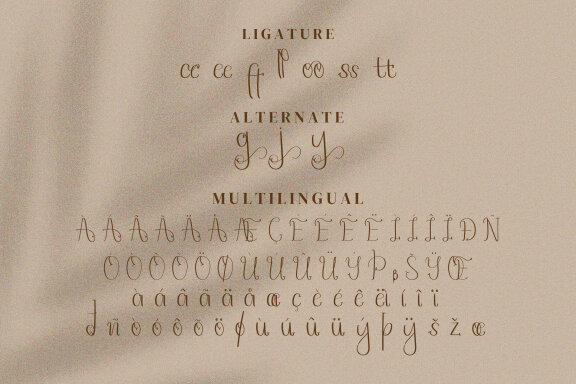 LIGATURE
cc ee ff ll oo ss tt
ALTERNATE
g j y
MULTILINGUAL
À Á Â Ã Ä Å Æ Ç È É Ê Ë Ì Í Î Ï Ð Ñ
Ò Ó Ô Õ Ö Ø Ù Ú Û Ü Ý Þ ß Š Ÿ Œ
à á â ã ä å æ ç è é ê ë ì í î ï
ð ñ ò ó ô õ ö ø ù ú û ü ý þ ÿ š ž œ